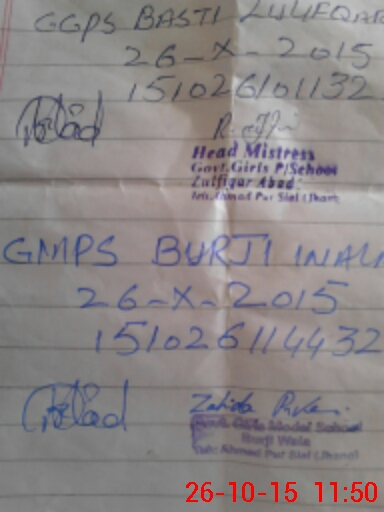 GGPS BASTI ZULFQAR
26-X-2015
151026101132
Head Mistress
Govt. Girls P/School
Zulfiqar Abad
Teh: Ahmad Pur Sial (Jhang
GMPS BURJI
26-X-2015
151026114432
Zahida
Govt. Girls Model School
Burji Wala
Teh: Ahmad Pur Sial (Jhang)
26-10-15 11:50